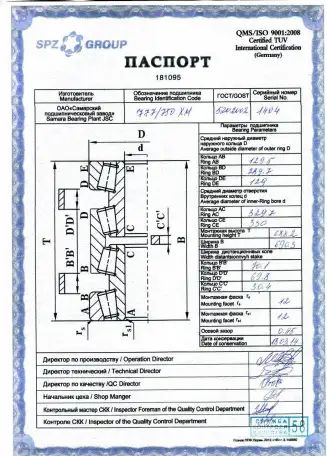 SPZ GROUP
QMS/ISO 9001:2008
Certified TUV
International Certification
(Germany)
ПАСПОРТ
181095
Изготовитель
Manufacturer
Обозначение подшипника
Bearing Identification Code
ГОСТ/GOST
Серийный номер
Serial No.
ОАО«Самарский
подшипниковый завод»
Samara Bearing Plant JSC
777/750 ХМ
520.2002
1404
D
d
Параметры подшипника
Bearing Parameters
Средний наружный диаметр
наружного кольца D
Average outside diameter of outer ring D
Кольцо AB
Ring AB
Кольцо BD
Ring BD
Кольцо DE
Ring DE
Средний диаметр отверстия
Внутренних колец d
Average diameter of inner-Ring bore d
Кольцо AC
Ring AC
Кольцо CE
Ring CE
330
Монтажная высота T
Mounting height T
Ширина B
Width B
Ширина дистанционных колец
Кольцо B'B'
Ring B'B'
Кольцо D'D'
Ring D'D'
Кольцо C'C'
Ring C'C'
Монтажная фаска rs
Mounting facet rs
12
Монтажная фаска rs1
Mounting facet rs1
12
Осевой зазор
Дата консервации
Date of conservation
T
B
D'D'
B'B'
C'C'
E
E
D
D
C
C
B
B
A
A
rs
rs1
Директор по производству / Operation Director
Директор технический / Technical Director
Директор по качеству /QC Director
Начальник цеха / Shop Manger
Контрольный мастер СКК / Inspector Foreman of the Quality Control Department
Контролер СКК / Inspector of the Quality Control Department
СЛУЖБА
58